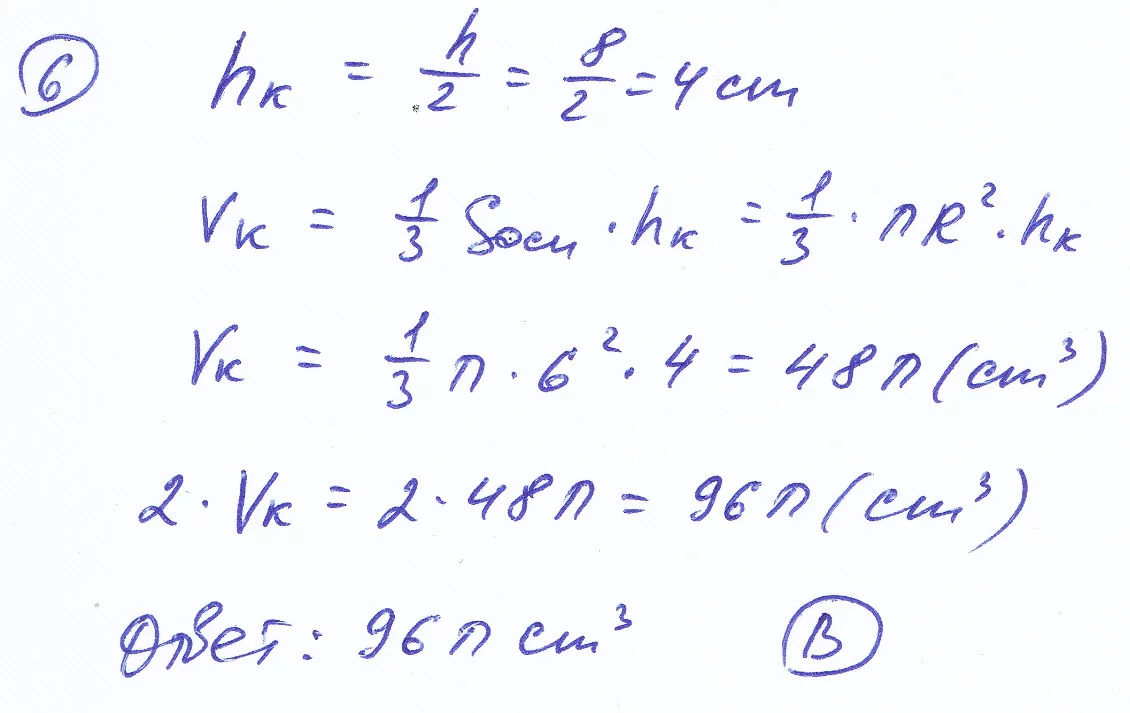 6 hк = h/2 = 8/2 = 4 cm
Vк = 1/3 Sосн · hк = 1/3 · πR² · hк
Vк = 1/3 π · 6² · 4 = 48π (cm³)
2 · Vк = 2 · 48π = 96π (cm³)
Ответ: 96π cm³ B